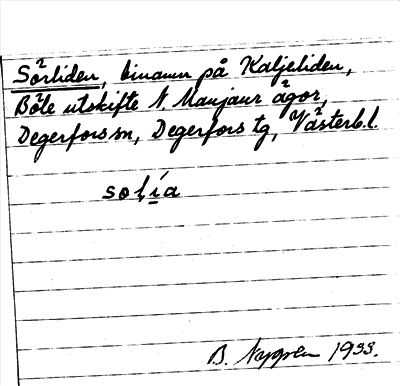 Sörliden, binamn på Kaljeliden,
Böle utskifte N. Manjaur ägor,
Degerfors sn, Degerfors tg, Västerb.l.
soḷía
B. Nygren 1933.